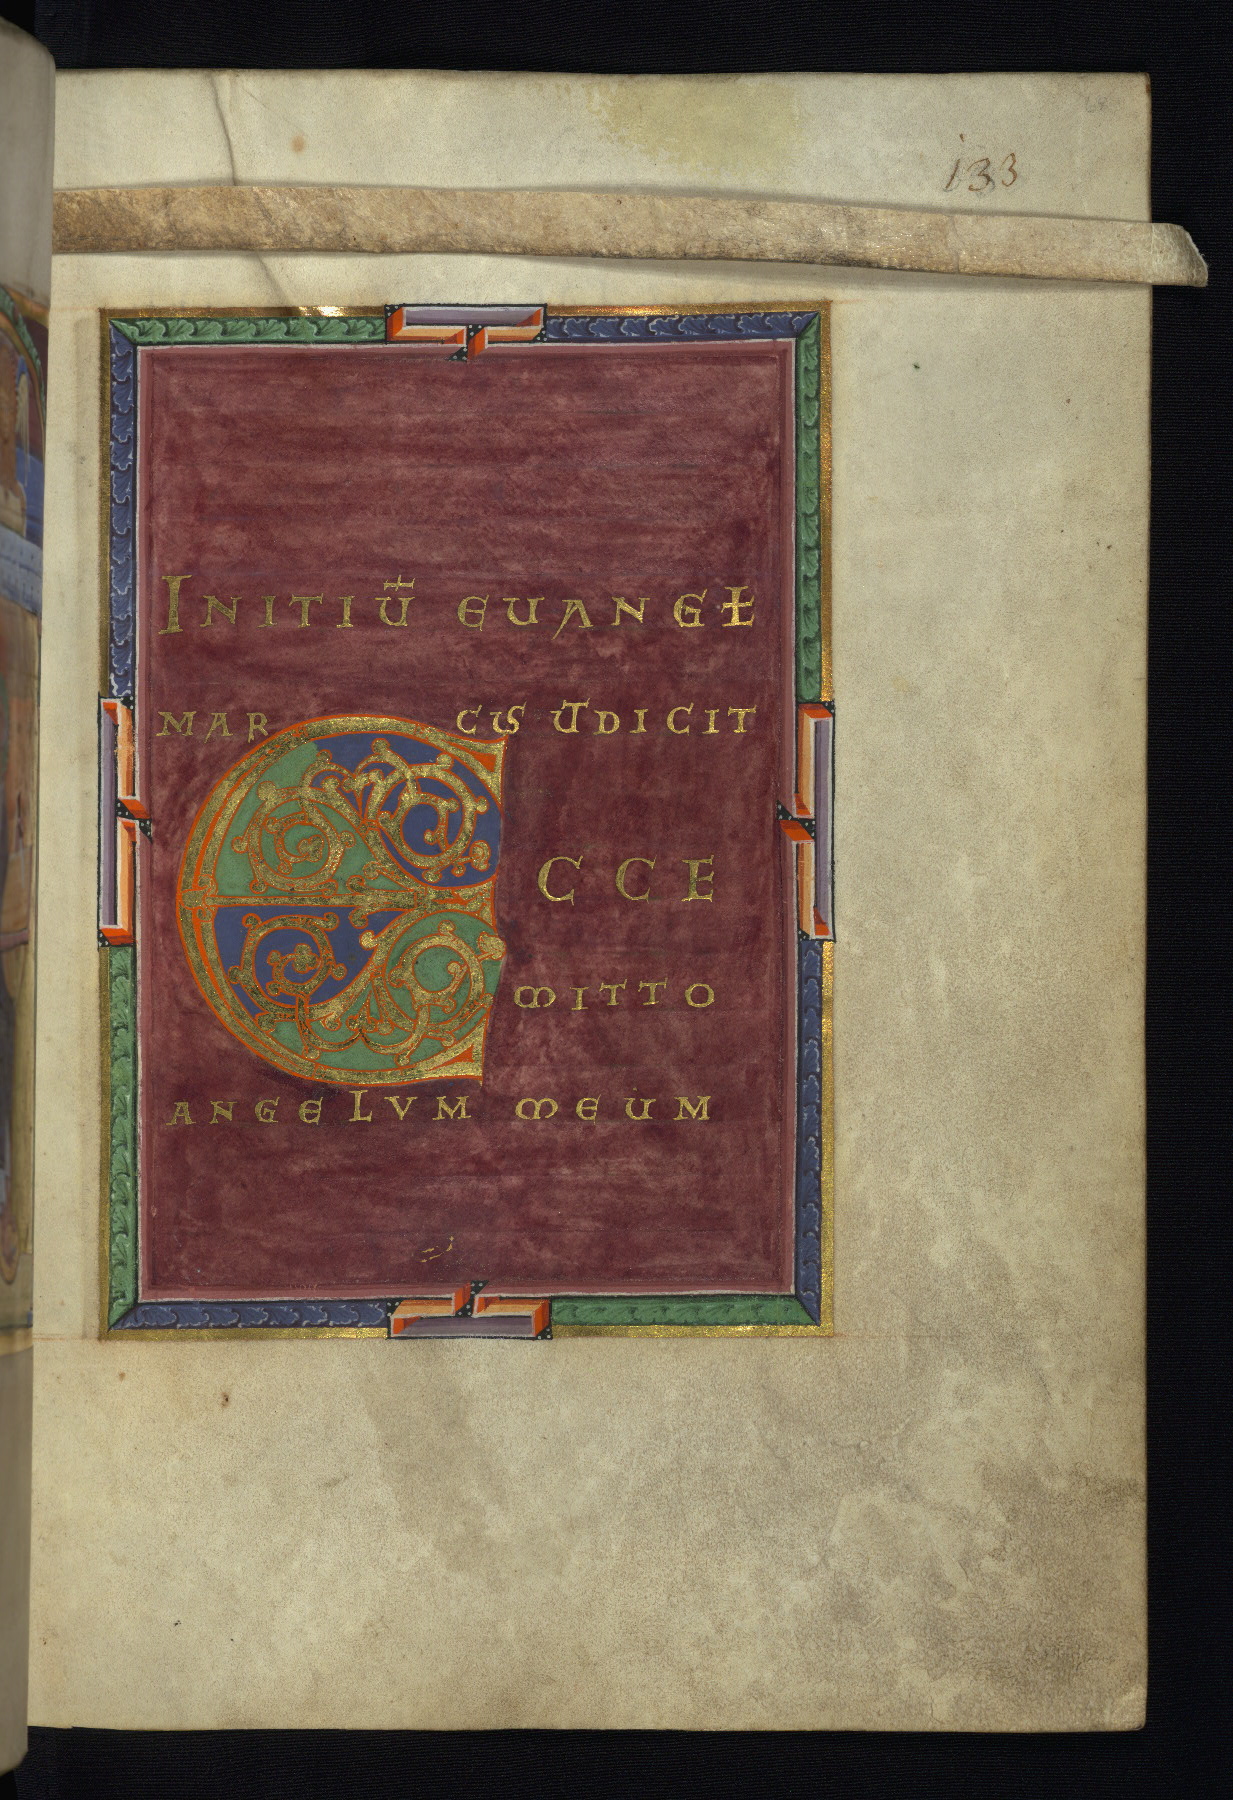 133
INITIŪ EUANGƚ
MARCUS ŪDICIT
ECCE
MITTO
ANGELVM MEUM